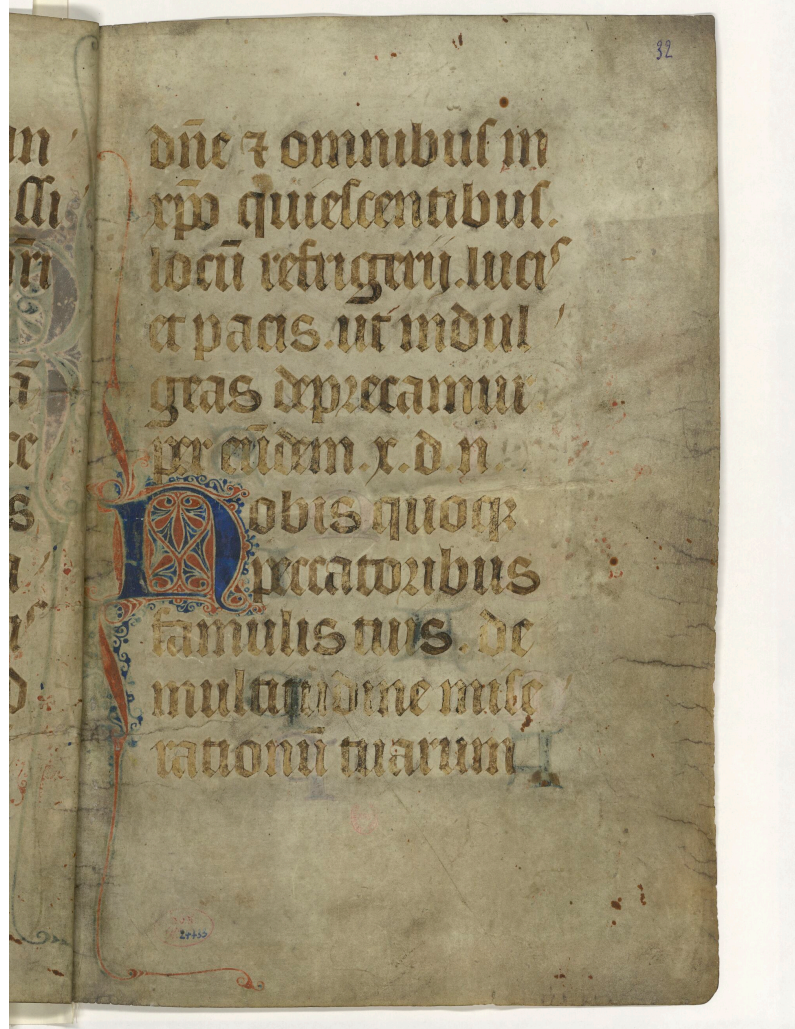 32
dn̄e ⁊ omnibus in
xp̄o quiescentibus.
locū refrigerij. lucis
et pacis. ut indul
geas deprecamur
per eūdem. x. d. n.
Nobis quoqꝫ
peccatoribus
famulis tuis. de
multitudine mise
rationū tuarum